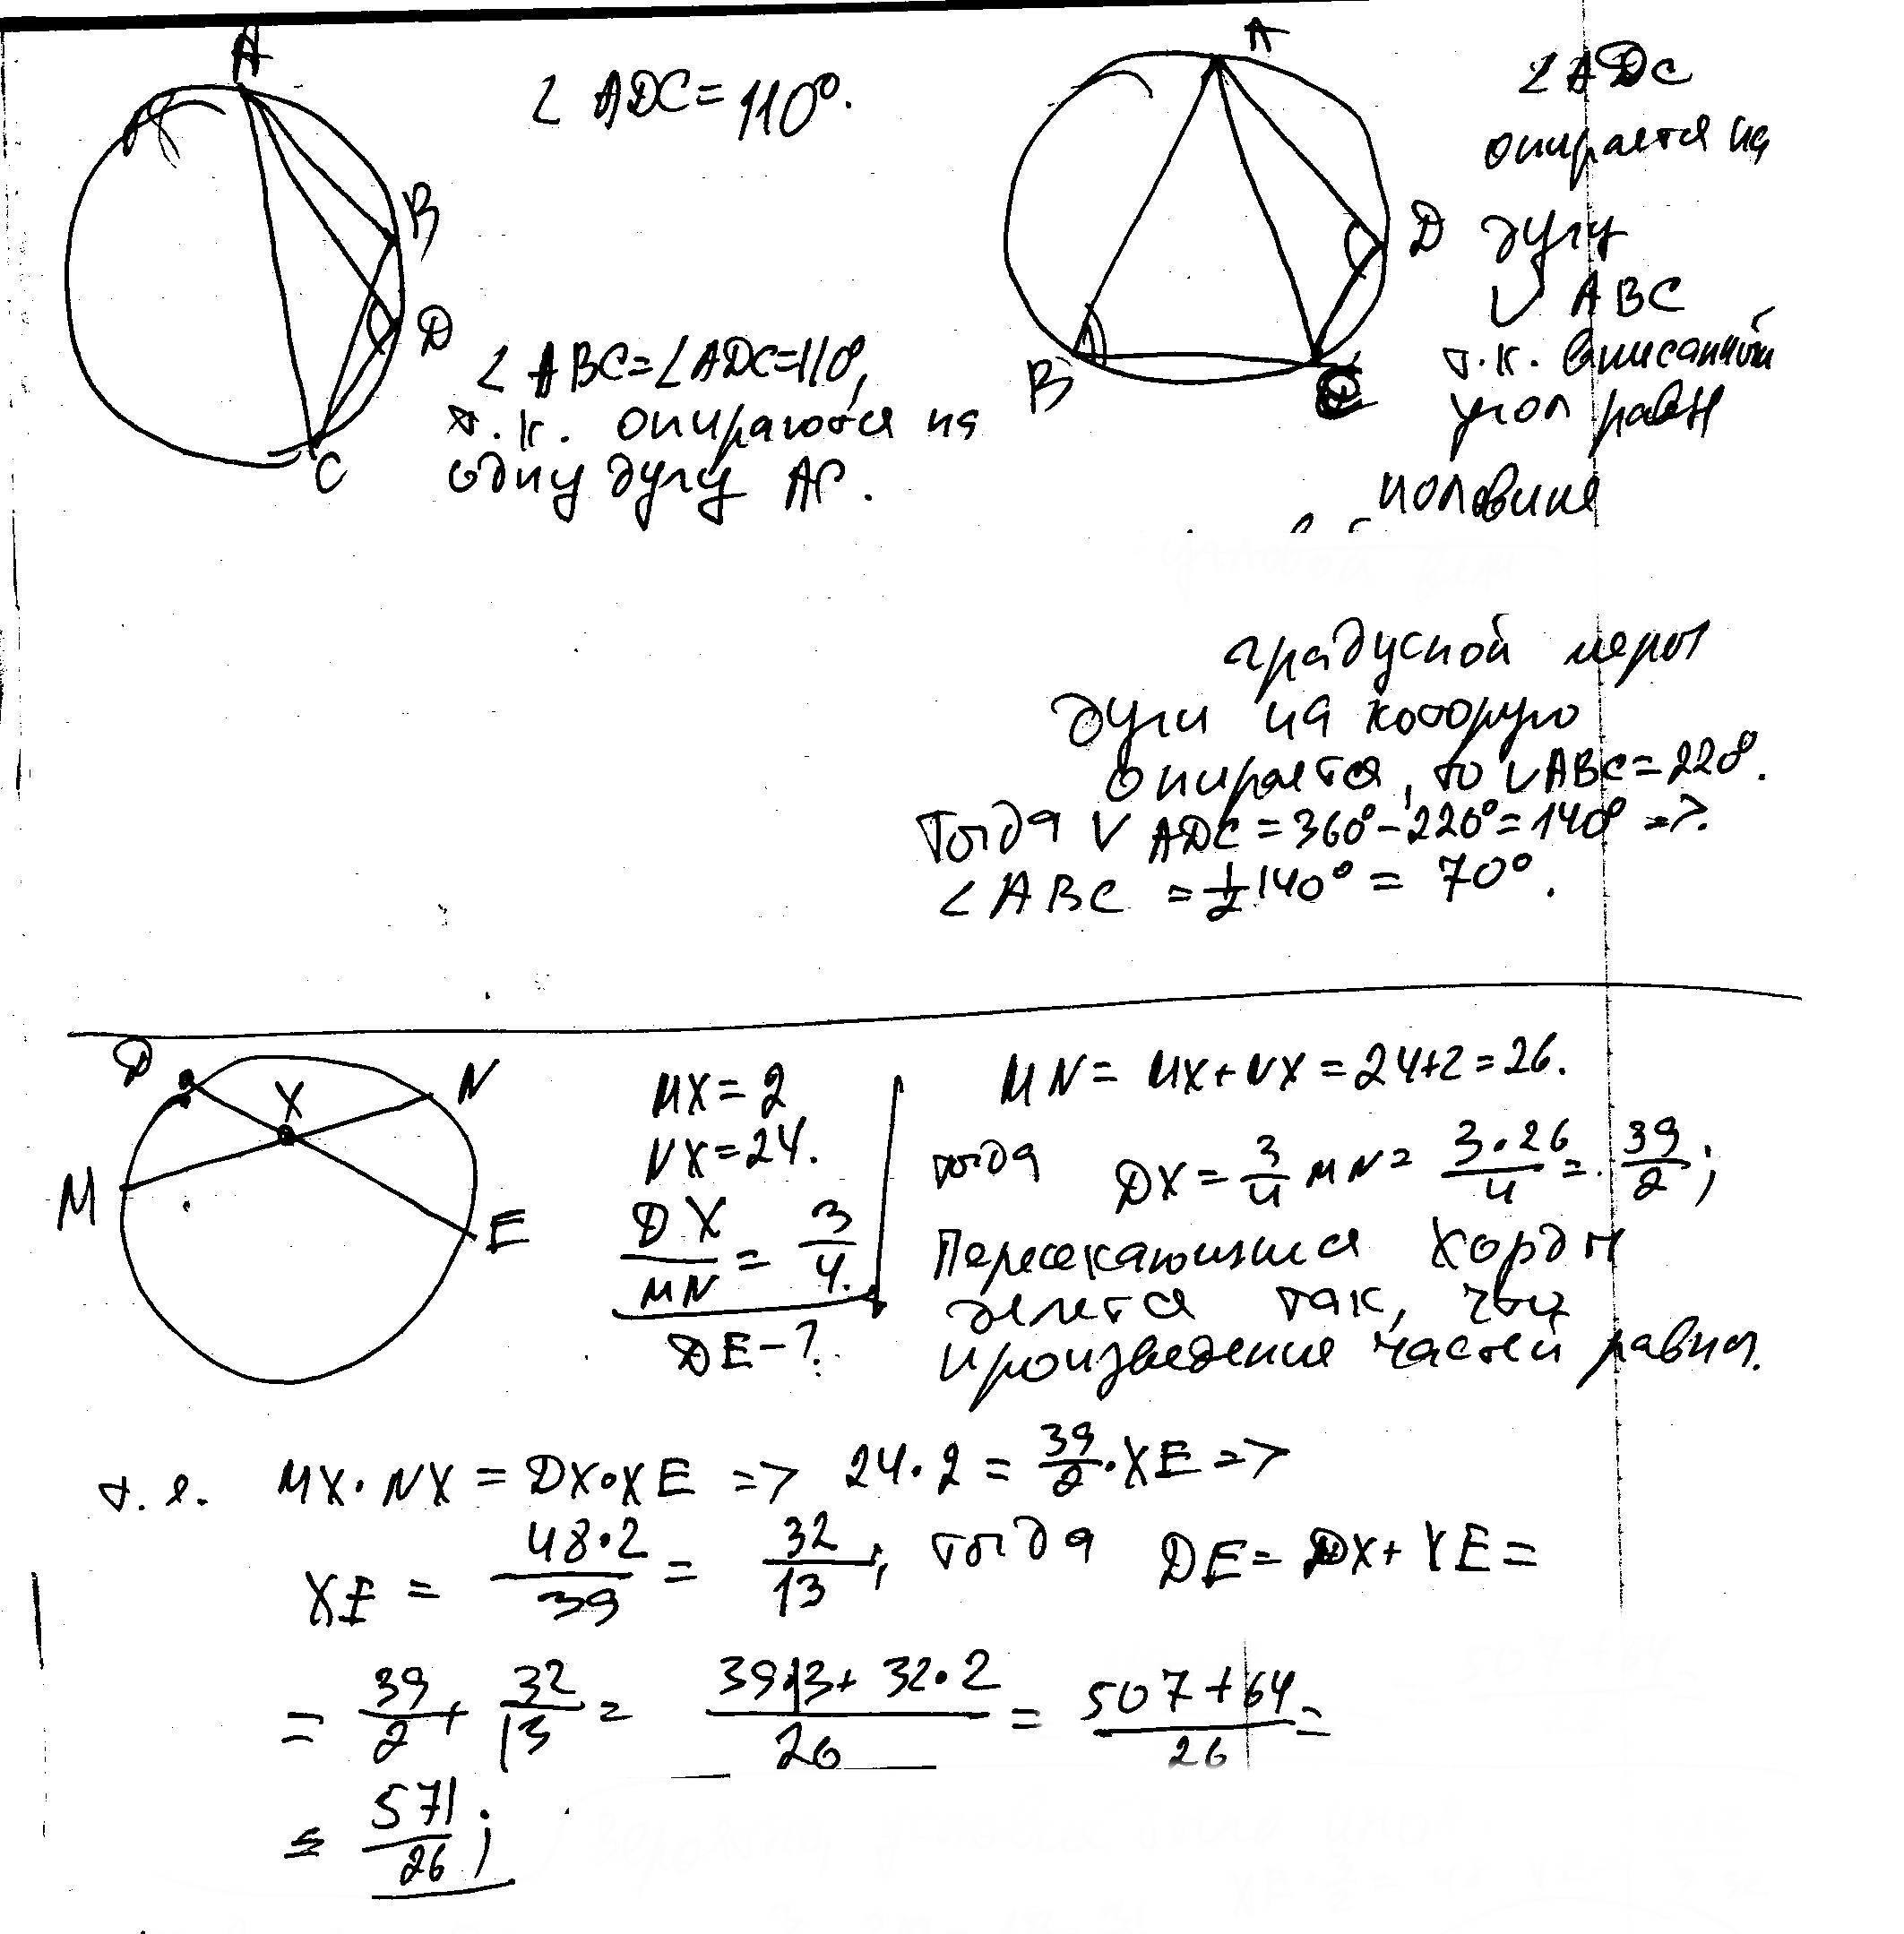 A
B
D
C
∠ ADC = 110°.
∠ ABC = ∠ADC = 110°,
т.к. опираются на
одну дугу AC.
A
D
B
C
∠ ADC
опирается на
дугу
∪ ABC
т.к. вписанный
угол равен
половине
градусной меры
дуги на которую
опирается, то ∪ ABC = 220°.
тогда ∪ ADC = 360° - 220° = 140° =>.
∠ ABC = 1/2 140° = 70°.
D
X
N
M
E
MX = 2
NX = 24.
DX/MN = 3/4.
DE - ?
MN = MX + NX = 24 + 2 = 26.
тогда DX = 3/4 MN = 3·26/4 = 39/2;
Пересекающиеся хорды
делятся так, что
произведения частей равны.
т.е. MX · NX = DX · XE => 24 · 2 = 39/2 · XE =>
XE = 48·2/39 = 32/13; тогда DE = DX + XE =
= 39/2 + 32/13 = 39·13 + 32·2/26 = 507 + 64/26 =
= 571/26;